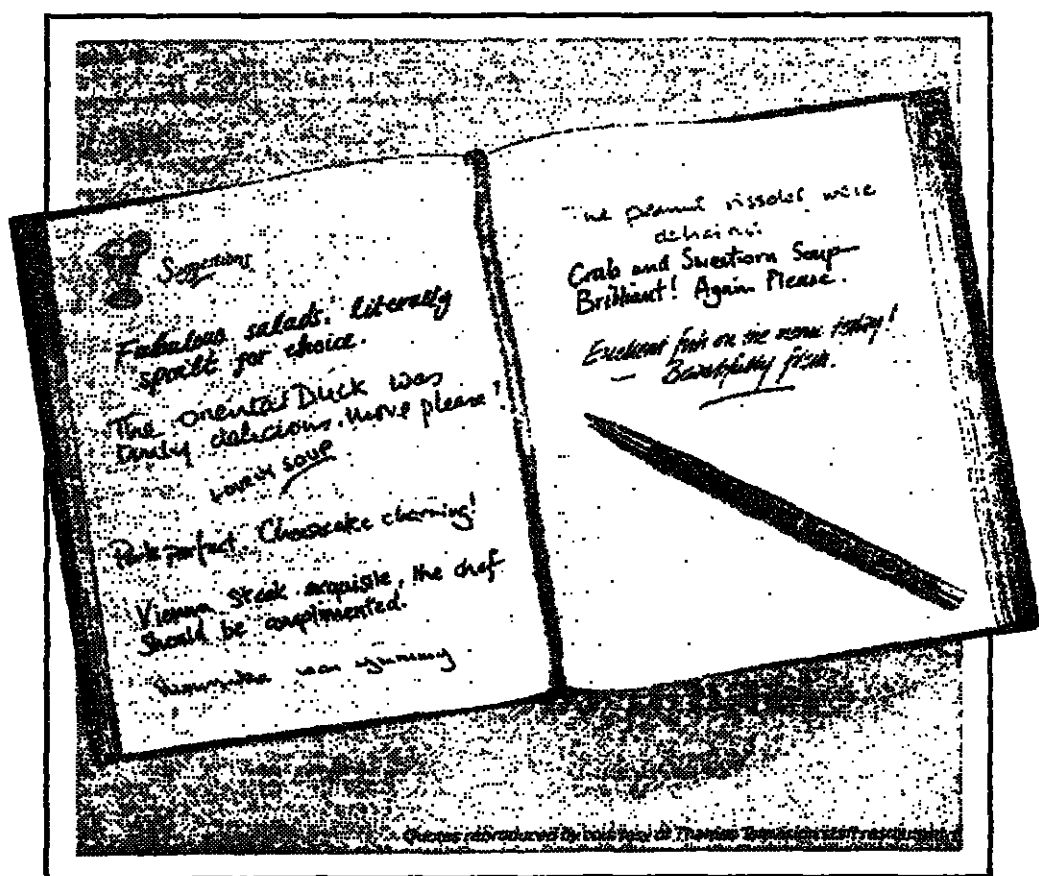 Suggestions
Fabulous salads. literally
spoilt for choice.
The oriental Duck was
truly delicious. More please!
LOVELY SOUP
Pork perfect. Cheesecake charming!
Vienna Steak exquisite, the chef
should be complimented.
was yummy
The peanut rissoles were
delicious.
Crab and Sweetcorn Soup—
Brilliant! Again Please.
Excellent fish on the menu today!
— Beautifully fresh.
Quotes reproduced by courtesy of Thames Television staff restaurant